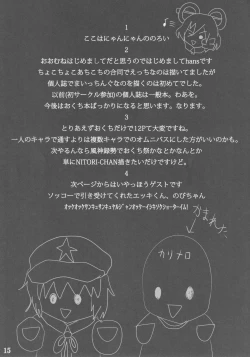 1
ここはにゃんにゃんののろい
2
おおむねはじめましてだと思うのではじめましてhansです
ちょこちょこあちこちの合同でえっちなのは描いてましたが
個人誌でまいっちんぐなのを描くのは初めてでした。
以前(初サークル参加)の個人誌は一般本。わあを。
今後はおくち本ばっかりになると思います。なります。
3
とりあえずおくちだけで12Pて大変ですね。
一人のキャラで通すよりは複数キャラでオムニバスにした方がいいのかも。
次やるんなら風神録勢でおくち祭かなとかなんとか
単にNITORI-CHAN描きたいだけですけど。
4
次ページからはいやっほうゲストです
ソッコーで引き受けてくれたエッキくん、のびちゃん
カリメロ
かまれた
15